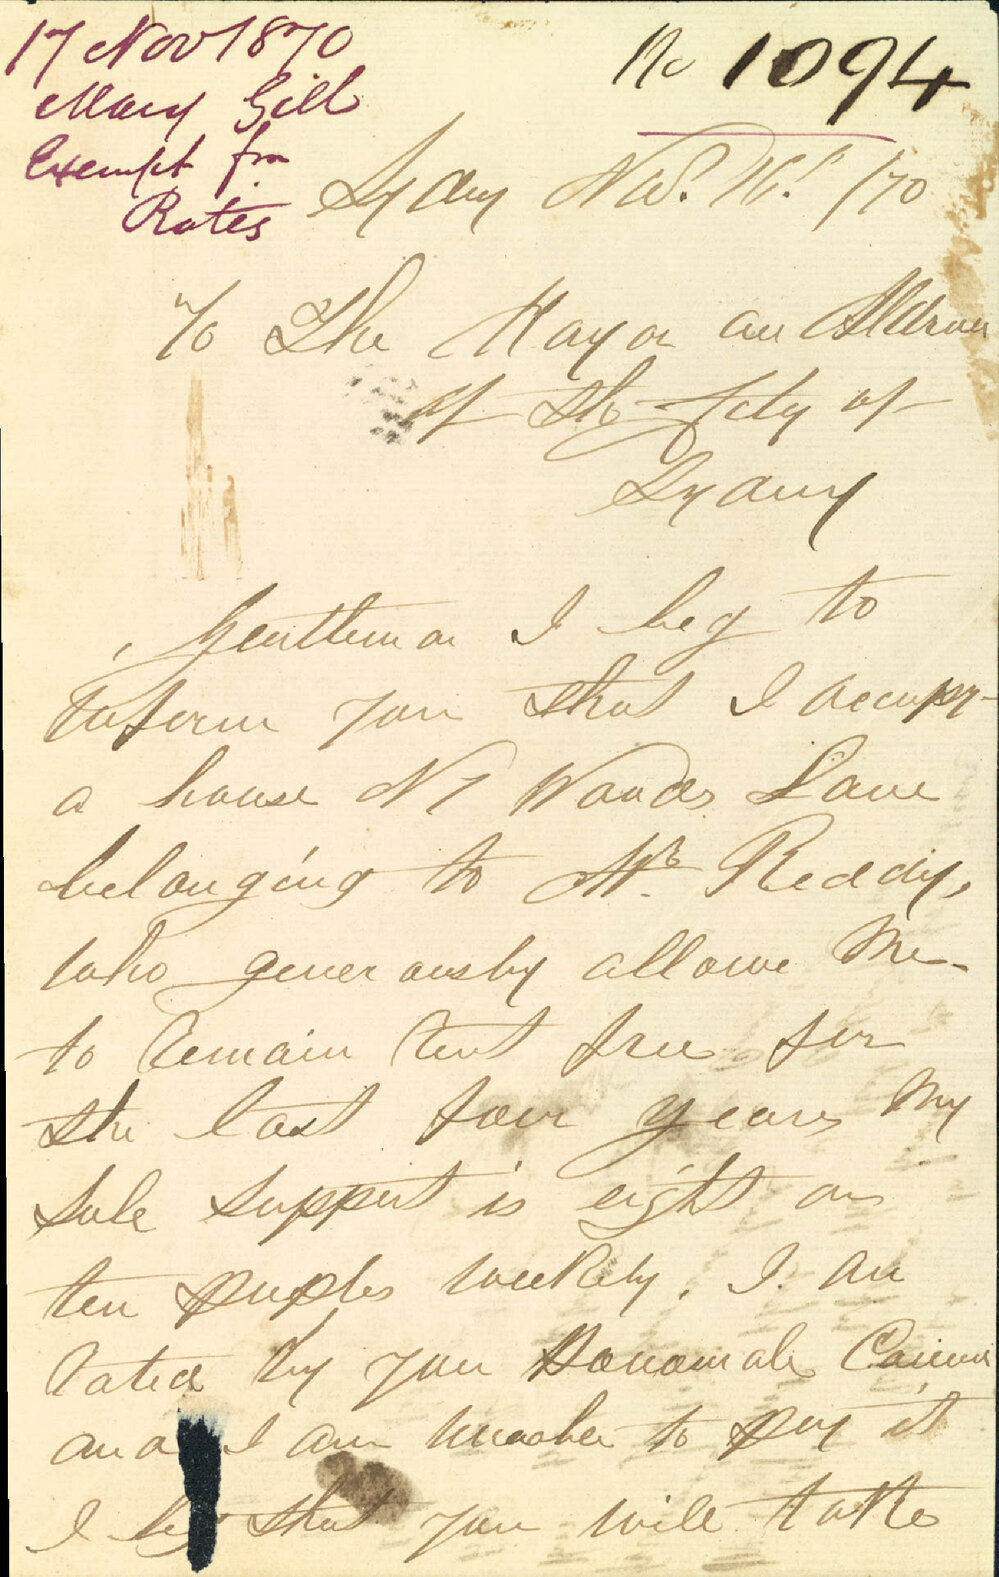 17 Nov 1870
Mary Gill
Exempt from
Rates
No 1094
Sydney Nov. 16. /70
To The Mayor an Aldermen
of the City of
Sydney
Gentleman I beg to
inform you that I occupy
a house N 7 Woods Lane
belonging to Mr. Reddy,
who generously allowe Me
to remain rent free for
the last four years My
sole support is eight or
ten puples weekely, I am
rated by your Honourable
and I am unable to pay it
I beg that you will take